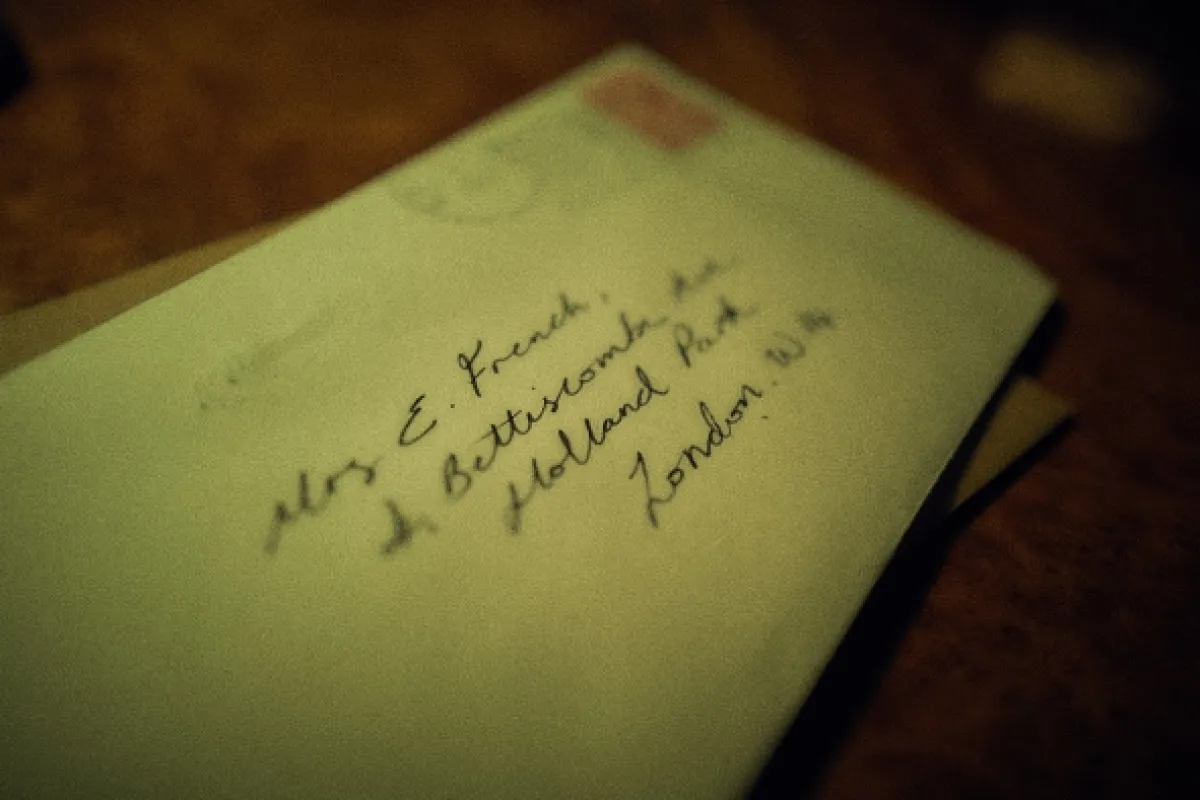 Mrs E. French,
Bettiscombe Av
Holland Park
London. W